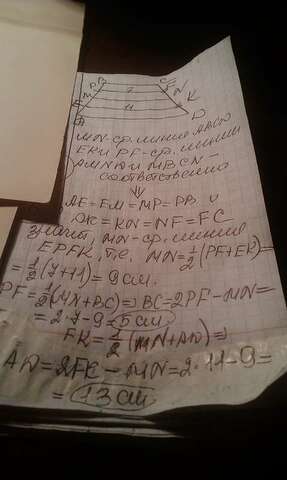 B C
P 7 F
M N
E 11 K
A D
MN-ср. линия ABCD
EK и PF-ср. линии
AMND и MBCN-
соответственно
⇓
AE=EM=MP=PB и
DK=KN=NF=FC
Значит, MN-ср. линия
EPFK, т.е. MN=1/2(PF+EK)=
=1/2(7+11)=9 см.
PF=1/2(MN+BC)=>BC=2PF-MN=
=2·7-9=5 см
EK=1/2(MN+AD)=>
AD=2EK-MN=2·11-9=
=13 см